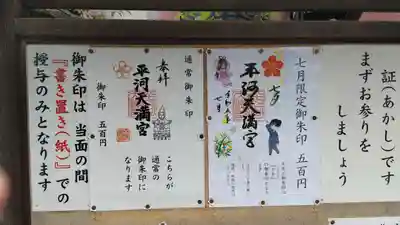 証(あかし)です
まずお参りを
しましょう
七月限定御朱印 五百円
七夕
平河天満宮
通常御朱印
奉拝
平河天満宮
こちらが
通常の
御朱印に
なります
御朱印 五百円
御朱印は 当面の間
『書き置き(紙)』での
授与のみとなります